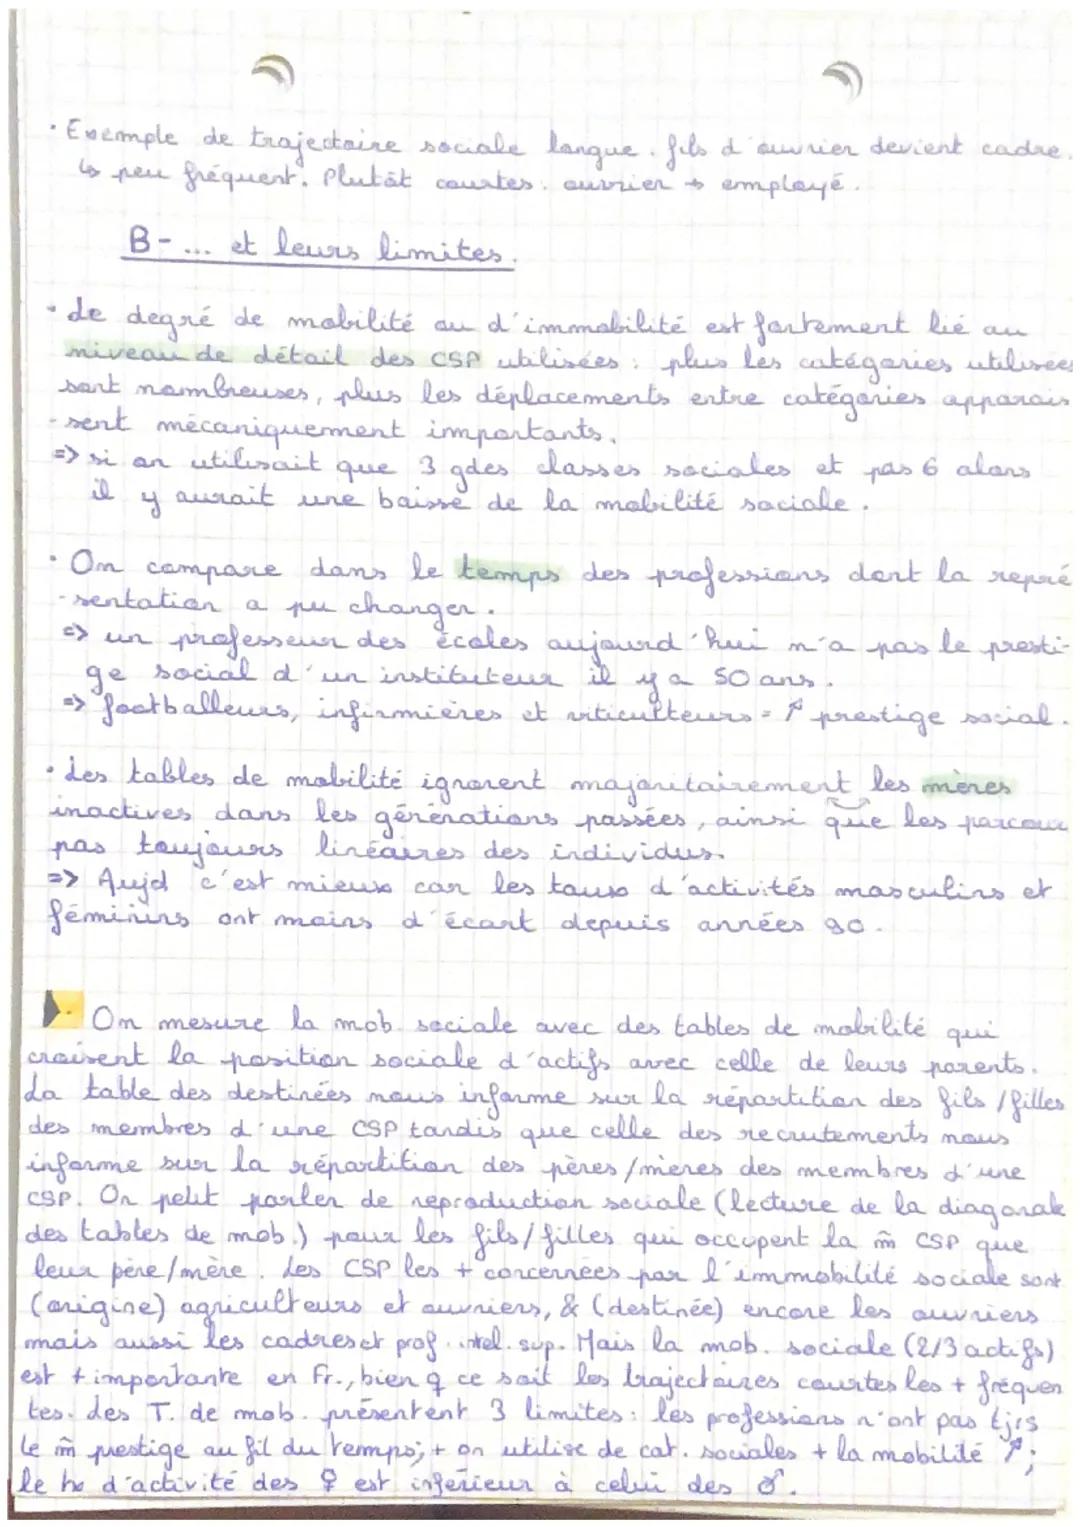 · Exemple de trajectoire sociale longue : fils d'ouvrier devient cadre.
↳ peu fréquent. Plutôt courtes : ouvrier → employé.
B - ... et leurs limites.
· Le degré de mobilité ou d'immobilité est fortement lié au
niveau de détail des CSP utilisées : plus les catégories utilisées
sont nombreuses, plus les déplacements entre catégories apparais
-sent mécaniquement importants.
=> si on utilisait que 3 gdes classes sociales et pas 6 alors
il y aurait une baisse de la mobilité sociale.
· On compare dans le temps des professions dont la repré
-sentation a pu changer.
=> un professeur des écoles aujourd'hui n'a pas le presti-
ge social d'un instituteur il y a 50 ans.
=> footballeurs, infirmières et viticulteurs = ↗ prestige social.
· Les tables de mobilité ignorent majoritairement les mères
inactives dans les générations passées, ainsi que les parcours
pas toujours linéaires des individus.
=> Aujd c'est mieux car les taux d'activités masculins et
féminins ont moins d'écart depuis années 90.
On mesure la mob. sociale avec des tables de mobilité qui
croisent la position sociale d'actifs avec celle de leurs parents.
La table des destinées nous informe sur la répartition des fils/filles
des membres d'une CSP tandis que celle des recrutements nous
informe sur la répartition des pères/mères des membres d'une
CSP. On peut parler de reproduction sociale (lecture de la diagonale
des tables de mob.) pour les fils/filles qui occupent la m̂ CSP que
leur père/mère. Les CSP les + concernées par l'immobilité sociale sont
(origine) agriculteurs et ouvriers, & (destinée) encore les ouvriers
mais aussi les cadres et prof. intel. sup. Mais la mob. sociale (2/3 actifs)
est + importante en Fr., bien q ce soit les trajectoires courtes les + fréquen
tes. Les T. de mob. présentent 3 limites : les professions n'ont pas tjrs
le m̂ prestige au fil du temps ; + on utilise de cat. sociales + la mobilité ↗ ;
le tx d'activité des ♀ est inférieur à celui des ♂.